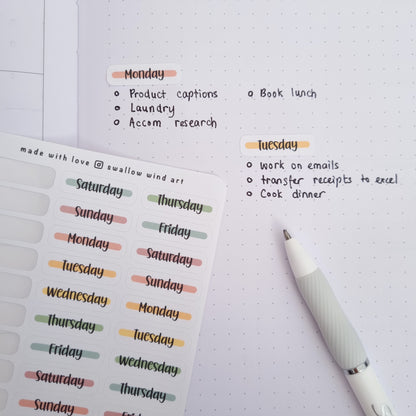 Monday
Product captions
Book lunch
Laundry
Accom research
Tuesday
work on emails
transfer receipts to excel
Cook dinner
made with love swallow wind art
Saturday
Thursday
Sunday
Friday
Monday
Saturday
Tuesday
Sunday
Wednesday
Monday
Thursday
Tuesday
Friday
Wednesday
Saturday
Thursday
Sunday
Friday